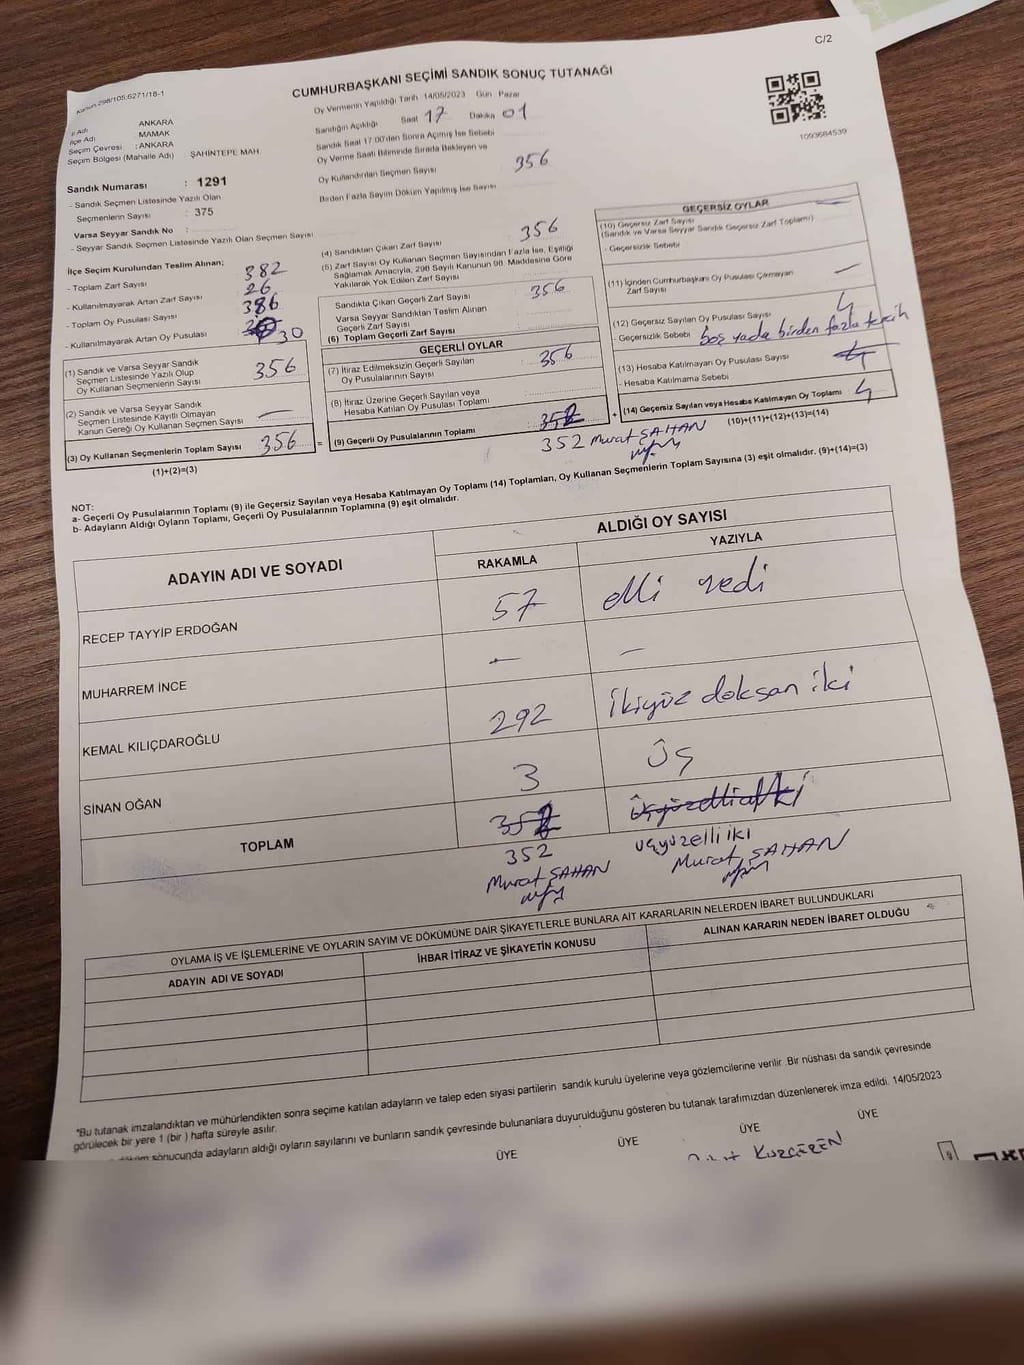 C/2
Kanun 298/105;6271/18-1
CUMHURBAŞKANI SEÇİMİ SANDIK SONUÇ TUTANAĞI
İl Adı : ANKARA
İlçe Adı MAMAK
Seçim Çevresi : ANKARA
Seçim Bölgesi (Mahalle Adı) ŞAHİNTEPE MAH.
Oy Vermenin Yapıldığı Tarih 14/05/2023 Gün Pazar
Sandığın Açıldığı Saat 17 Dakika 01
Sandık Saat 17:00'den Sonra Açılmış İse Sebebi
Oy Verme Saati Bitiminde Sırada Bekleyen ve
Oy Kullandırılan Seçmen Sayısı 356
Birden Fazla Sayım Döküm Yapılmış İse Sayısı
1093684539
Sandık Numarası : 1291
- Sandık Seçmen Listesinde Yazılı Olan
Seçmenlerin Sayısı : 375
Varsa Seyyar Sandık No :
- Seyyar Sandık Seçmen Listesinde Yazılı Olan Seçmen Sayısı
İlçe Seçim Kurulundan Teslim Alınan;
- Toplam Zarf Sayısı 382
- Kullanılmayarak Artan Zarf Sayısı 26
- Toplam Oy Pusulası Sayısı 386
- Kullanılmayarak Artan Oy Pusulası 30
(1) Sandık ve Varsa Seyyar Sandık
Seçmen Listesinde Yazılı Olup
Oy Kullanan Seçmenlerin Sayısı 356
(2) Sandık ve Varsa Seyyar Sandık
Seçmen Listesinde Kayıtlı Olmayan
Kanun Gereği Oy Kullanan Seçmen Sayısı —
(3) Oy Kullanan Seçmenlerin Toplam Sayısı 356 =
(1)+(2)=(3)
(4) Sandıktan Çıkan Zarf Sayısı 356
(5) Zarf Sayısı Oy Kullanan Seçmen Sayısından Fazla İse, Eşitliği
Sağlamak Amacıyla, 298 Sayılı Kanunun 98. Maddesine Göre
Yakılarak Yok Edilen Zarf Sayısı
Sandıkta Çıkan Geçerli Zarf Sayısı 356
Varsa Seyyar Sandıktan Teslim Alınan
Geçerli Zarf Sayısı
(6) Toplam Geçerli Zarf Sayısı
GEÇERLİ OYLAR
(7) İtiraz Edilmeksizin Geçerli Sayılan
Oy Pusulalarının Sayısı 356
(8) İtiraz Üzerine Geçerli Sayılan veya
Hesaba Katılan Oy Pusulası Toplamı
(9) Geçerli Oy Pusulalarının Toplamı : 352 +
352 Murat ŞAHAN
GEÇERSİZ OYLAR
(10) Geçersiz Zarf Sayısı —
(Sandık ve Varsa Seyyar Sandık Geçersiz Zarf Toplamı)
- Geçersizlik Sebebi
(11) İçinden Cumhurbaşkanı Oy Pusulası Çıkmayan
Zarf Sayısı —
(12) Geçersiz Sayılan Oy Pusulası Sayısı 4
- Geçersizlik Sebebi boş yada birden fazla tercih
(13) Hesaba Katılmayan Oy Pusulası Sayısı
- Hesaba Katılmama Sebebi
(14) Geçersiz Sayılan veya Hesaba Katılmayan Oy Toplamı 4
(10)+(11)+(12)+(13)=(14)
NOT:
a- Geçerli Oy Pusulalarının Toplamı (9) ile Geçersiz Sayılan veya Hesaba Katılmayan Oy Toplamı (14) Toplamları, Oy Kullanan Seçmenlerin Toplam Sayısına (3) eşit olmalıdır. (9)+(14)=(3)
b- Adayların Aldığı Oyların Toplamı, Geçerli Oy Pusulalarının Toplamına (9) eşit olmalıdır.
ADAYIN ADI VE SOYADI
ALDIĞI OY SAYISI
RAKAMLA YAZIYLA
RECEP TAYYİP ERDOĞAN 57 elli yedi
MUHARREM İNCE — —
KEMAL KILIÇDAROĞLU 292 ikiyüz doksan iki
SİNAN OĞAN 3 üç
TOPLAM 352 üçyüzelli iki
352 üçyüzelli iki
Murat ŞAHAN Murat ŞAHAN
OYLAMA İŞ VE İŞLEMLERİNE VE OYLARIN SAYIM VE DÖKÜMÜNE DAİR ŞİKAYETLERLE BUNLARA AİT KARARLARIN NELERDEN İBARET BULUNDUKLARI
ADAYIN ADI VE SOYADI İHBAR İTİRAZ VE ŞİKAYETİN KONUSU ALINAN KARARIN NEDEN İBARET OLDUĞU
*Bu tutanak imzalandıktan ve mühürlendikten sonra seçime katılan adayların ve talep eden siyasi partilerin sandık kurulu üyelerine veya gözlemcilerine verilir. Bir nüshası da sandık çevresinde
görülecek bir yere 1 (bir) hafta süreyle asılır.
döküm sonucunda adayların aldığı oyların sayılarını ve bunların sandık çevresinde bulunanlara duyurulduğunu gösteren bu tutanak tarafımızdan düzenlenerek imza edildi. 14/05/2023
ÜYE ÜYE ÜYE ÜYE